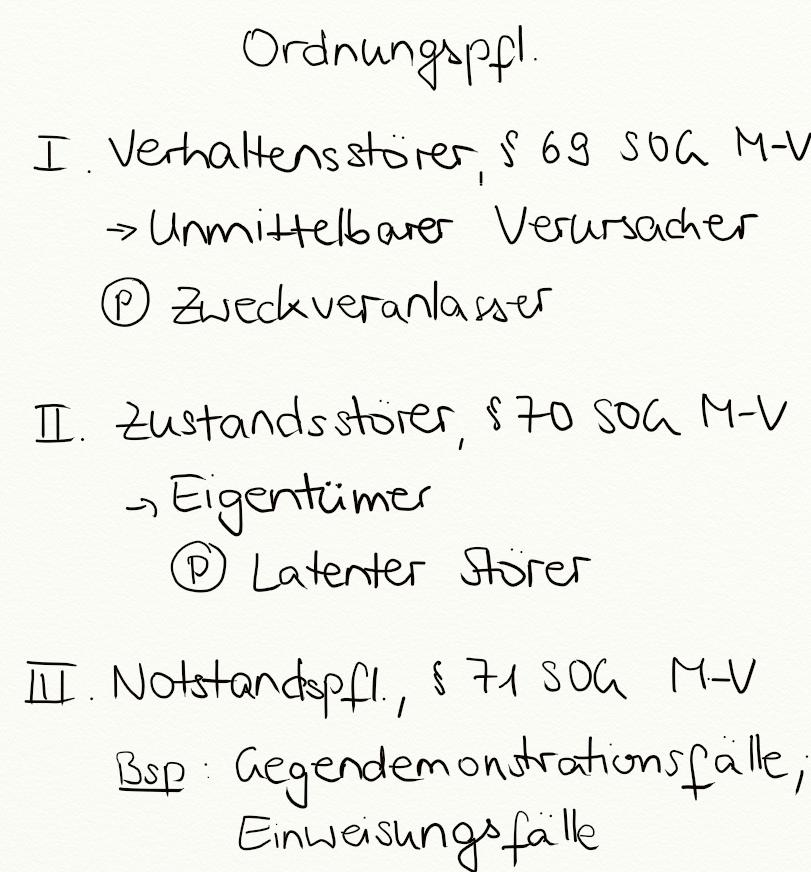 Ordnungspfl.
I. Verhaltensstörer, § 69 SOG M-V
→ Unmittelbarer Verursacher
(P) Zweckveranlasser
II. Zustandsstörer, § 70 SOG M-V
→ Eigentümer
(P) Latenter Störer
III. Notstandspfl., § 71 SOG M-V
Bsp: Gegendemonstrationsfälle,
Einweisungsfälle